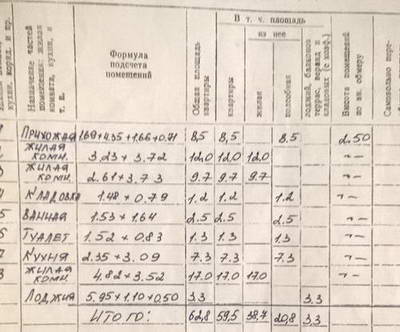 В т. ч. площадь
из нее
Назначение частей помещения: жилая комната, кухня, и т. п.
Формула подсчета помещений
Общая площадь квартиры
квартиры
жилая
подсобная
лоджий, балконов террас, веранд и кладовых (с коэф.)
Высота помещений по вн. обмеру
Самовольно
Прихожая 1.69+4.35+1.66+0.71 8,5 8,5 8.5 2.50
2 жилая комн. 3.23 + 3.72 12.0 12.0 12.0 —"—
жилая комн. 2.61 + 3.73 9.7 9.7 9.7 —"—
4 Кладовка 1.48 + 0.79 1.2 1.2 1.2 —"—
5 Ванная 1.53 + 1.64 2.5 2.5 2.5 —"—
6 Туалет 1.52 + 0.83 1.3 1.3 1.3 —"—
7 Кухня 2.35 + 3.09 7.3 7.3 7.3 —"—
8 жилая комн. 4.82 + 3.52 17.0 17.0 17.0 —"—
Лоджия 5.95+1.10+0.50 3.3 3.3
ИТОГО: 62,8 59,5 38.7 20,8 3.3